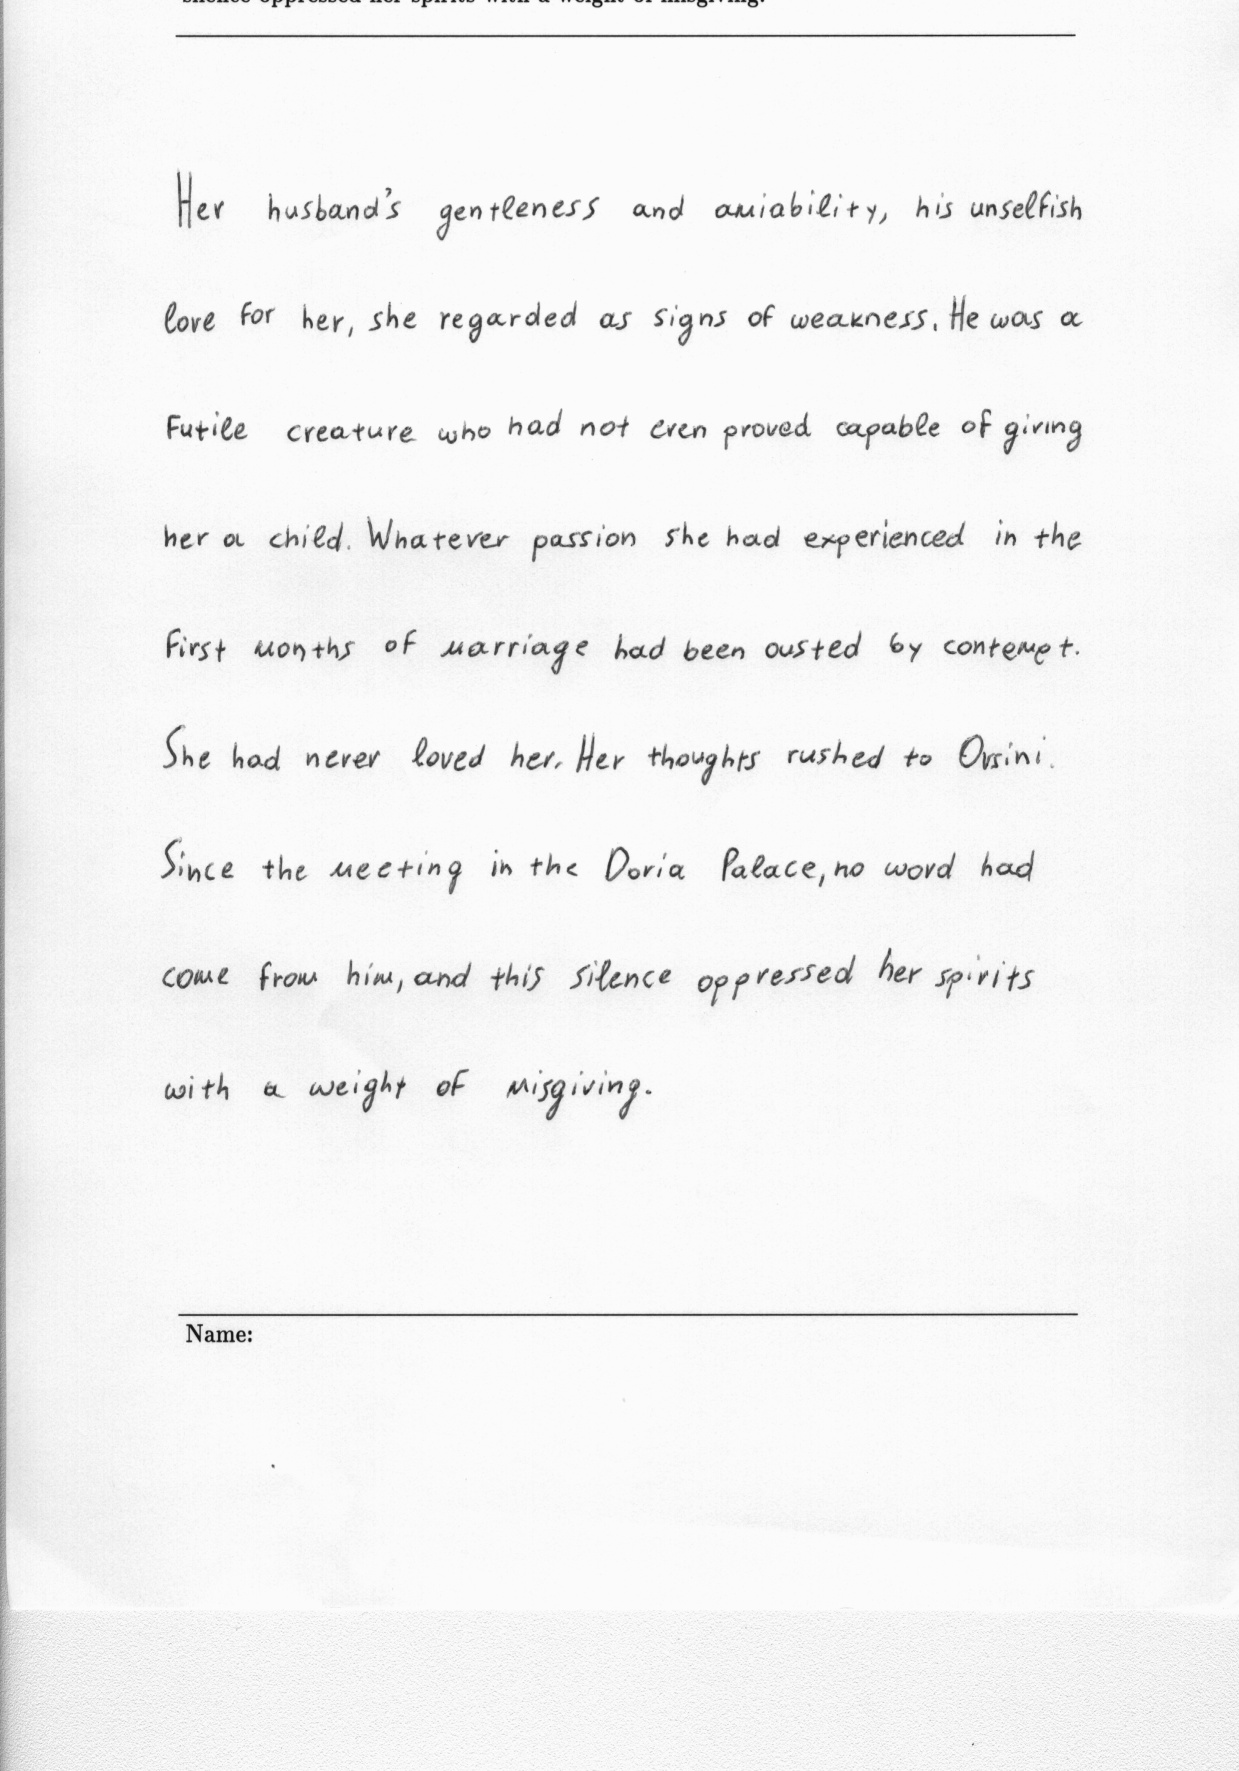 silence oppressed her spirits with a weight of misgiving.
Her husband's gentleness and amiability, his unselfish
love for her, she regarded as signs of weakness. He was a
futile creature who had not even proved capable of giving
her a child. Whatever passion she had experienced in the
first months of marriage had been ousted by contempt.
She had never loved her. Her thoughts rushed to Orsini.
Since the meeting in the Doria Palace, no word had
come from him, and this silence oppressed her spirits
with a weight of misgiving.
Name: